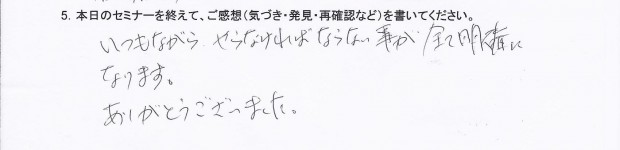 5. 本日のセミナーを終えて、ご感想（気づき・発見・再確認など）を書いてください。
いつもながら やらなければならない事が 全て明確に
なります。
ありがとうございました。